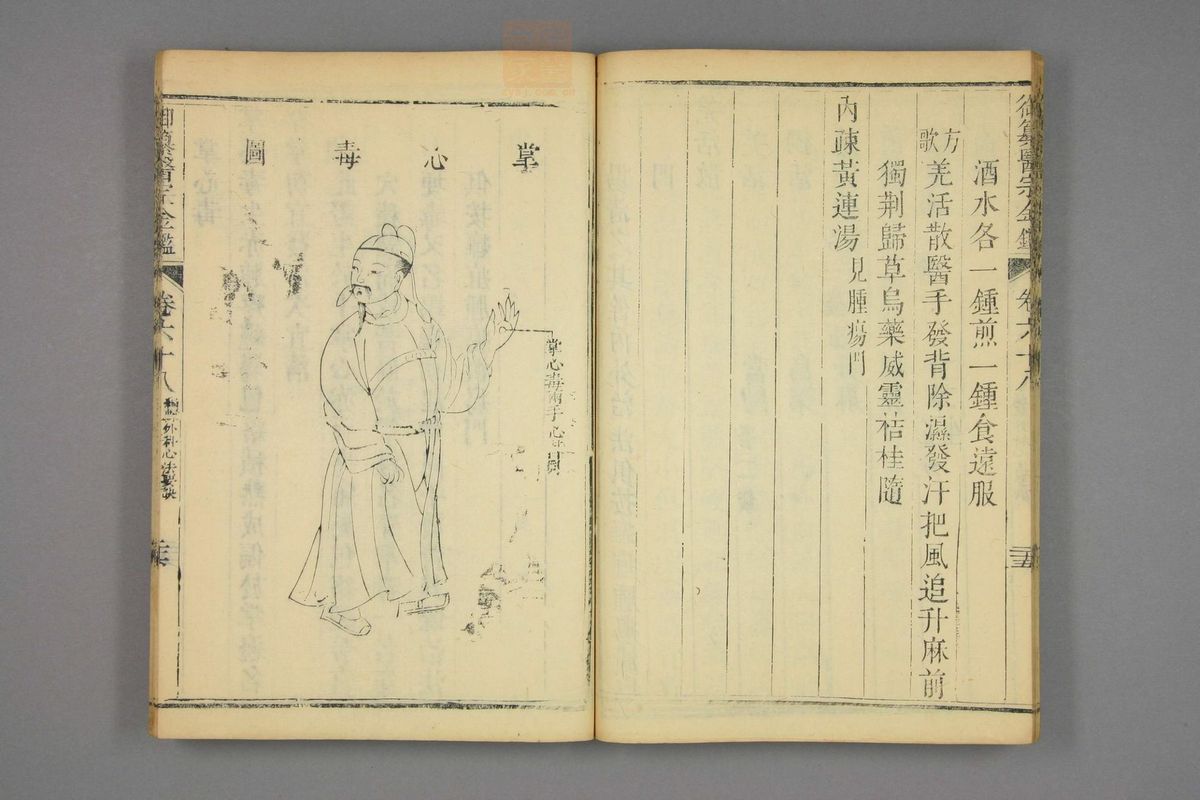 御纂醫宗金鑑 卷六十八
酒水各一鍾煎一鍾食遠服
方歌 羌活散醫手發背除濕發汗把風追升麻前
獨荆歸草烏藥威靈桔桂隨
內疎黃連湯見腫瘍門
掌心毒圖
掌心毒兩手心
御纂醫宗金鑑 卷六十八
外科心法要訣